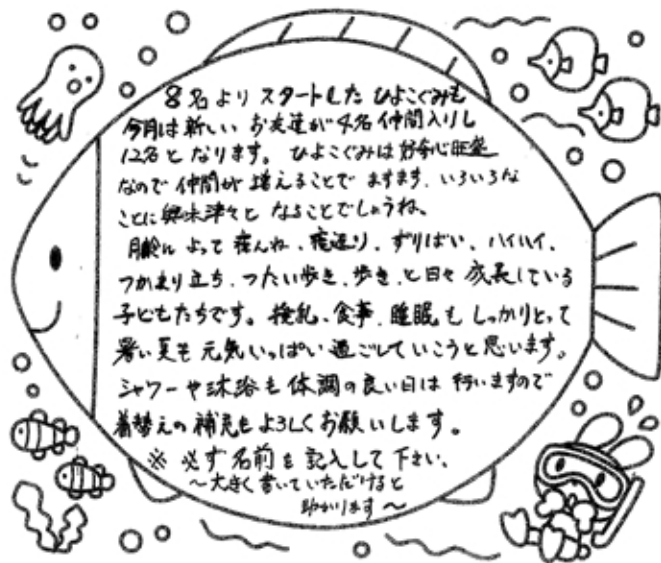 8名よりスタートしたひよこぐみも
今月は新しいお友達が4名仲間入りし
12名となります。ひよこぐみは好奇心旺盛
なので仲間が増えることでますます、いろいろな
ことに興味津々となることでしょうね。
月齢によって寝んね、寝返り、ずりばい、ハイハイ、
つかまり立ち、つたい歩き、歩き、と日々成長している
子どもたちです。授乳、食事、睡眠もしっかりとって
暑い夏も元気いっぱい過ごしていこうと思います。
シャワーや沐浴も体調の良い日は行いますので
着替えの補充もよろしくお願いします。
※必ず名前を記入して下さい。
～大きく書いていただけると
助かります～